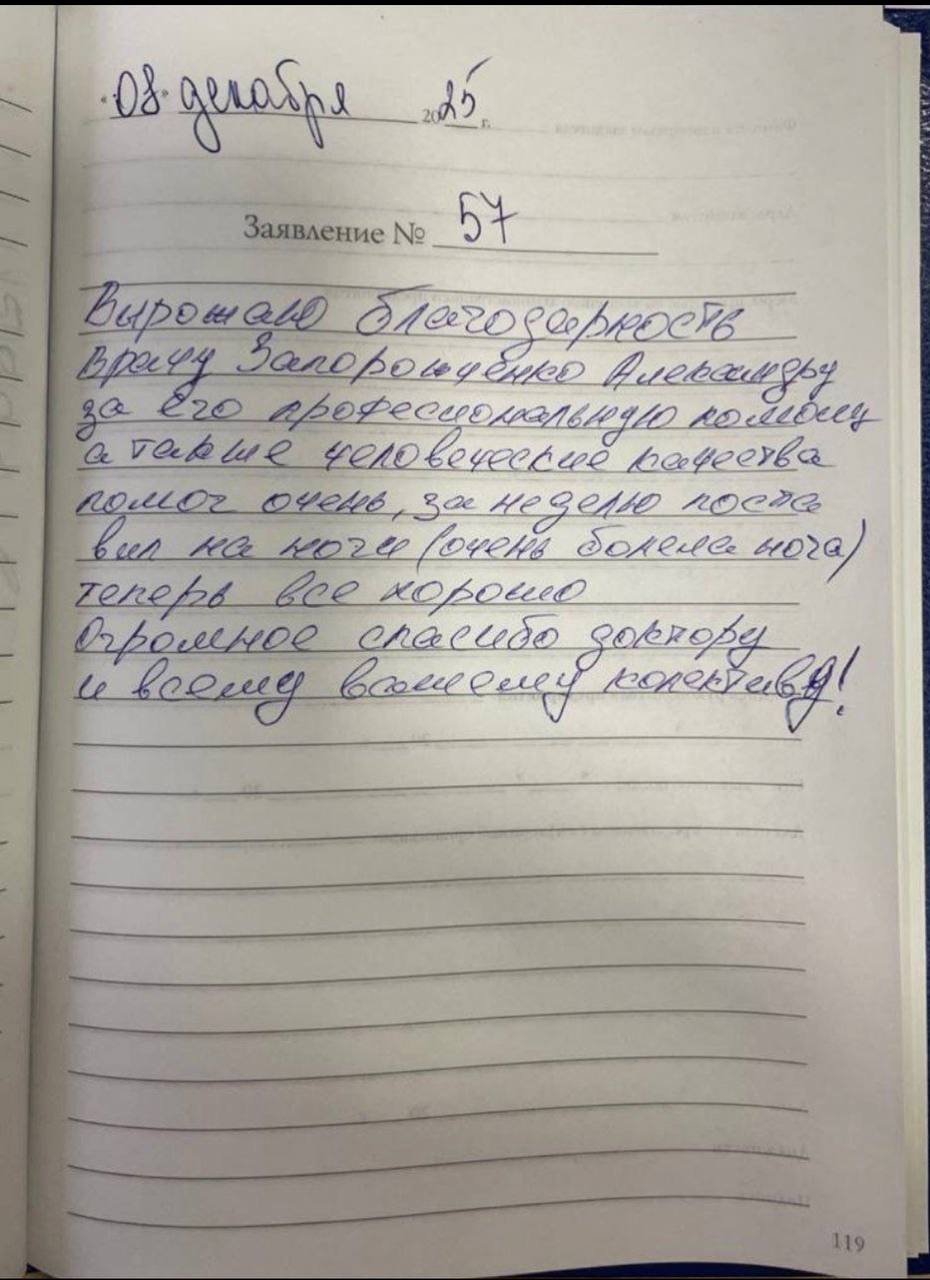 "08" декабря 2025 г.
Заявление № 57
Вырожаю благодарность
врачу Запорожченко Александру
за его професиональную помощь
а также человеческие качества
помог очень, за неделю поста
вил на ноги (очень болела нога)
теперь все хорошо
Огромное спасибо доктору
и всему вашему колективу!
119